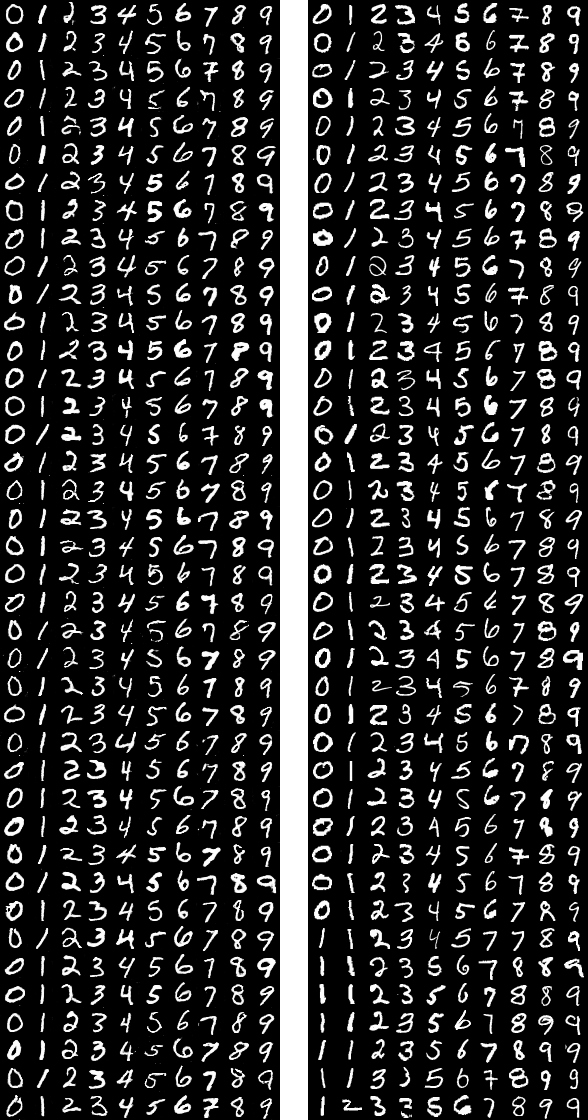 0 1 2 3 4 5 6 7 8 9
0 1 2 3 4 5 6 7 8 9
0 1 2 3 4 5 6 7 8 9
0 1 2 3 4 5 6 7 8 9
0 1 2 3 4 5 6 7 8 9
0 1 2 3 4 5 6 7 8 9
0 1 2 3 4 5 6 7 8 9
0 1 2 3 4 5 6 7 8 9
0 1 2 3 4 5 6 7 8 9
0 1 2 3 4 5 6 7 8 9
0 1 2 3 4 5 6 7 8 9
0 1 2 3 4 5 6 7 8 9
0 1 2 3 4 5 6 7 8 9
0 1 2 3 4 5 6 7 8 9
0 1 2 3 4 5 6 7 8 9
0 1 2 3 4 5 6 7 8 9
0 1 2 3 4 5 6 7 8 9
0 1 2 3 4 5 6 7 8 9
0 1 2 3 4 5 6 7 8 9
0 1 2 3 4 5 6 7 8 9
0 1 2 3 4 5 6 7 8 9
0 1 2 3 4 5 6 7 8 9
0 1 2 3 4 5 6 7 8 9
0 1 2 3 4 5 6 7 8 9
0 1 2 3 4 5 6 7 8 9
0 1 2 3 4 5 6 7 8 9
0 1 2 3 4 5 6 7 8 9
0 1 2 3 4 5 6 7 8 9
0 1 2 3 4 5 6 7 8 9
0 1 2 3 4 5 6 7 8 9
0 1 2 3 4 5 6 7 8 9
0 1 2 3 4 5 6 7 8 9
0 1 2 3 4 5 6 7 8 9
0 1 2 3 4 5 6 7 8 9
0 1 2 3 4 5 6 7 8 9
0 1 2 3 4 5 6 7 8 9
0 1 2 3 4 5 6 7 8 9
0 1 2 3 4 5 6 7 8 9
0 1 2 3 4 5 6 7 8 9
0 1 2 3 4 5 6 7 8 9
0 1 2 3 4 5 6 7 8 9
0 1 2 3 4 5 6 7 8 9
0 1 2 3 4 5 6 7 8 9
0 1 2 3 4 5 6 7 8 9
0 1 2 3 4 5 6 7 8 9
0 1 2 3 4 5 6 7 8 9
0 1 2 3 4 5 6 7 8 9
0 1 2 3 4 5 6 7 8 8
0 1 2 3 4 5 6 7 8 9
0 1 2 3 4 5 6 7 8 9
0 1 2 3 4 5 6 7 8 9
0 1 2 3 4 5 6 7 8 9
0 1 2 3 4 5 6 7 8 9
0 1 2 3 4 5 6 7 8 9
0 1 2 3 4 5 6 7 8 9
0 1 2 3 4 5 6 7 8 9
0 1 2 3 4 5 6 7 8 9
0 1 2 3 4 5 6 7 8 9
0 1 2 3 4 5 6 7 8 9
0 1 2 3 4 5 6 7 8 9
0 1 2 3 4 5 6 7 8 9
0 1 2 3 4 5 6 7 8 9
0 1 2 3 4 5 6 7 8 9
0 1 2 3 4 5 6 7 8 9
0 1 2 3 4 5 6 7 8 9
0 1 2 3 4 5 6 7 8 9
0 1 2 3 4 5 6 7 8 9
0 1 2 3 4 5 6 7 8 9
0 1 2 3 4 5 6 7 8 9
0 1 2 3 4 5 6 7 8 9
0 1 2 3 4 5 6 7 8 9
0 1 2 3 4 5 6 7 8 9
0 1 2 3 4 5 6 7 8 9
1 1 2 3 4 5 7 7 8 9
1 1 2 3 5 6 7 8 8 9
1 1 2 3 5 6 7 8 8 9
1 1 2 3 5 6 7 8 9 9
1 1 2 3 5 6 7 8 9 9
1 1 3 3 5 6 7 8 9 9
1 2 3 3 5 6 7 8 9 9